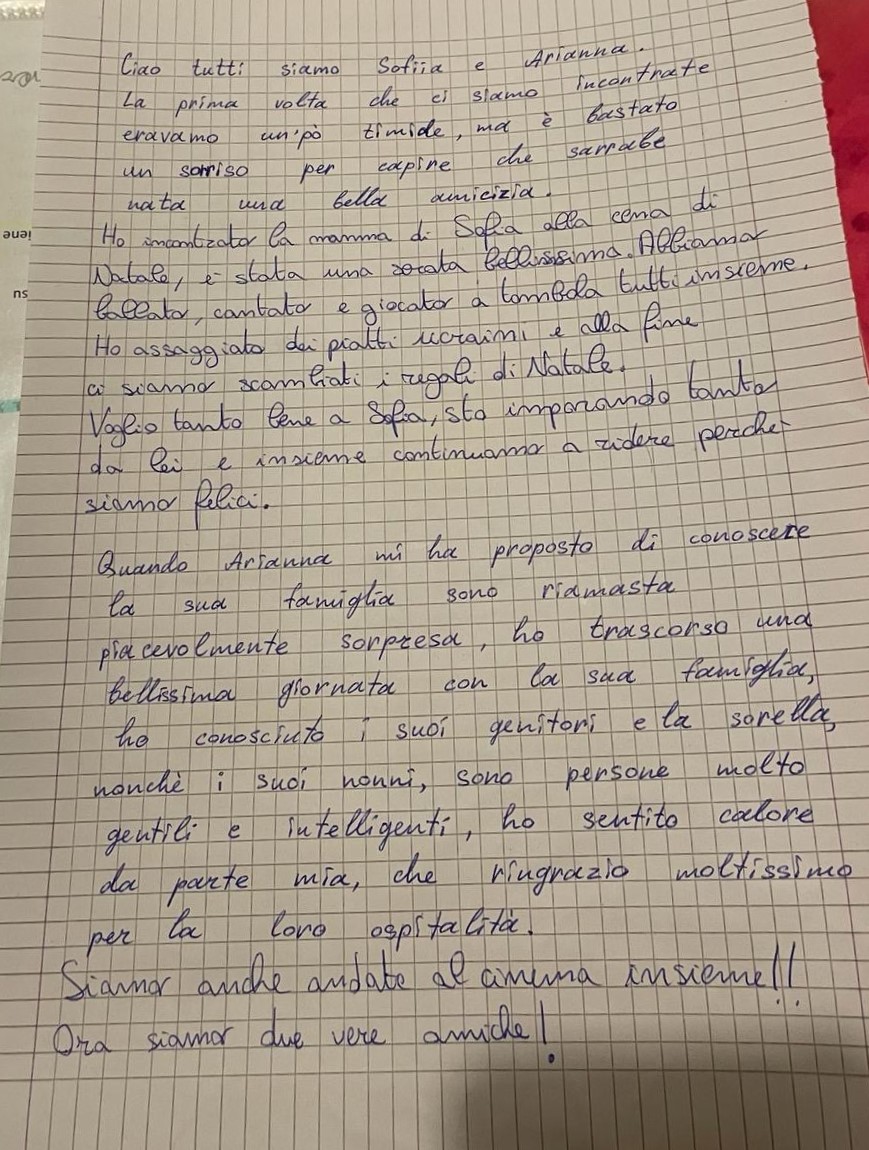 Ciao tutti siamo Sofiia e Arianna.
La prima volta che ci siamo incontrate
eravamo un'pò timide, ma è bastato
un sorriso per capire che sarrabe
nata una bella amicizia.
Ho incontrato la mamma di Sofia alla cena di
Natale, è stata una serata bellissima. Abbiamo
ballato, cantato e giocato a tombola tutti insieme.
Ho assaggiato dei piatti ucraini e alla fine
ci siamo scambiati i regali di Natale.
Voglio tanto bene a Sofia, sto imparando tanto
da lei e insieme continuiamo a ridere perchè
siamo felici.
Quando Arianna mi ha proposto di conoscere
la sua famiglia sono riamasta
piacevolmente sorpresa, ho trascorso una
bellissima giornata con la sua famiglia,
ho conosciuto i suoi genitori e la sorella,
nonchè i suoi nonni, sono persone molto
gentili e intelligenti, ho sentito calore
da parte mia, che ringrazio moltissimo
per la loro ospitalità.
Siamo anche andate al cinema insieme!!
Ora siamo due vere amiche!